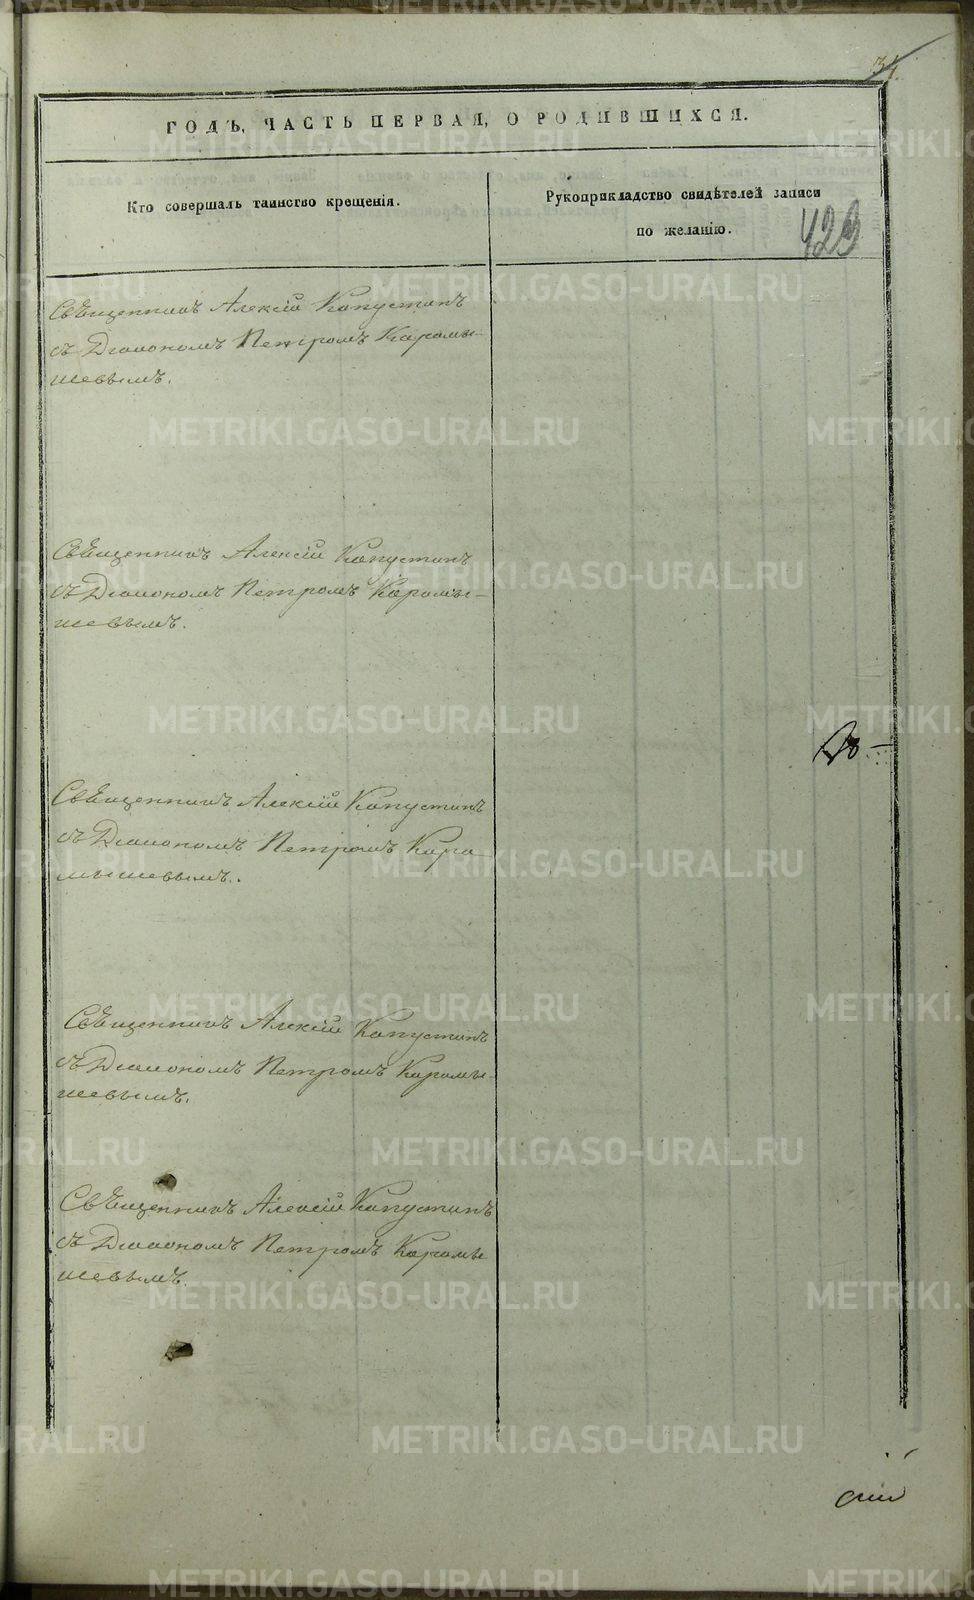 ГОДЪ, ЧАСТЬ ПЕРВАЯ, О РОДИВШИХСЯ.
Кто совершалъ таинство крещенія.
Рукоприкладство свидѣтелей записи
по желанію.
423
Священникъ Алексій Капустинъ
съ Діакономъ Петромъ Карамы-
шевымъ.
Священникъ Алексій Капустинъ
съ Діакономъ Петромъ Карамы-
шевымъ.
Священникъ Алексій Капустинъ
съ Діакономъ Петромъ Кара-
мышевымъ.
Священникъ Алексій Капустинъ
съ Діакономъ Петромъ Карамы-
шевымъ.
Священникъ Алексій Капустинъ
съ Діакономъ Петромъ Карамы-
шевымъ.
METRIKI.GASO-URAL.RU